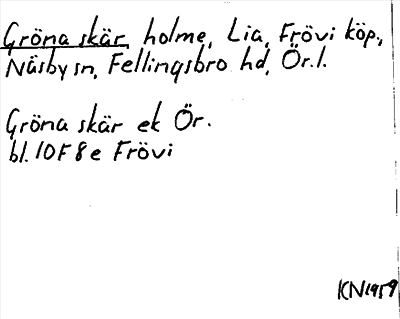 Gröna skär, holme, Lia, Frövi köp.,
Näsby sn, Fellingsbro hd, Ör.l.
Gröna skär ek Ör.
bl. 10F 8e Frövi
KN1959